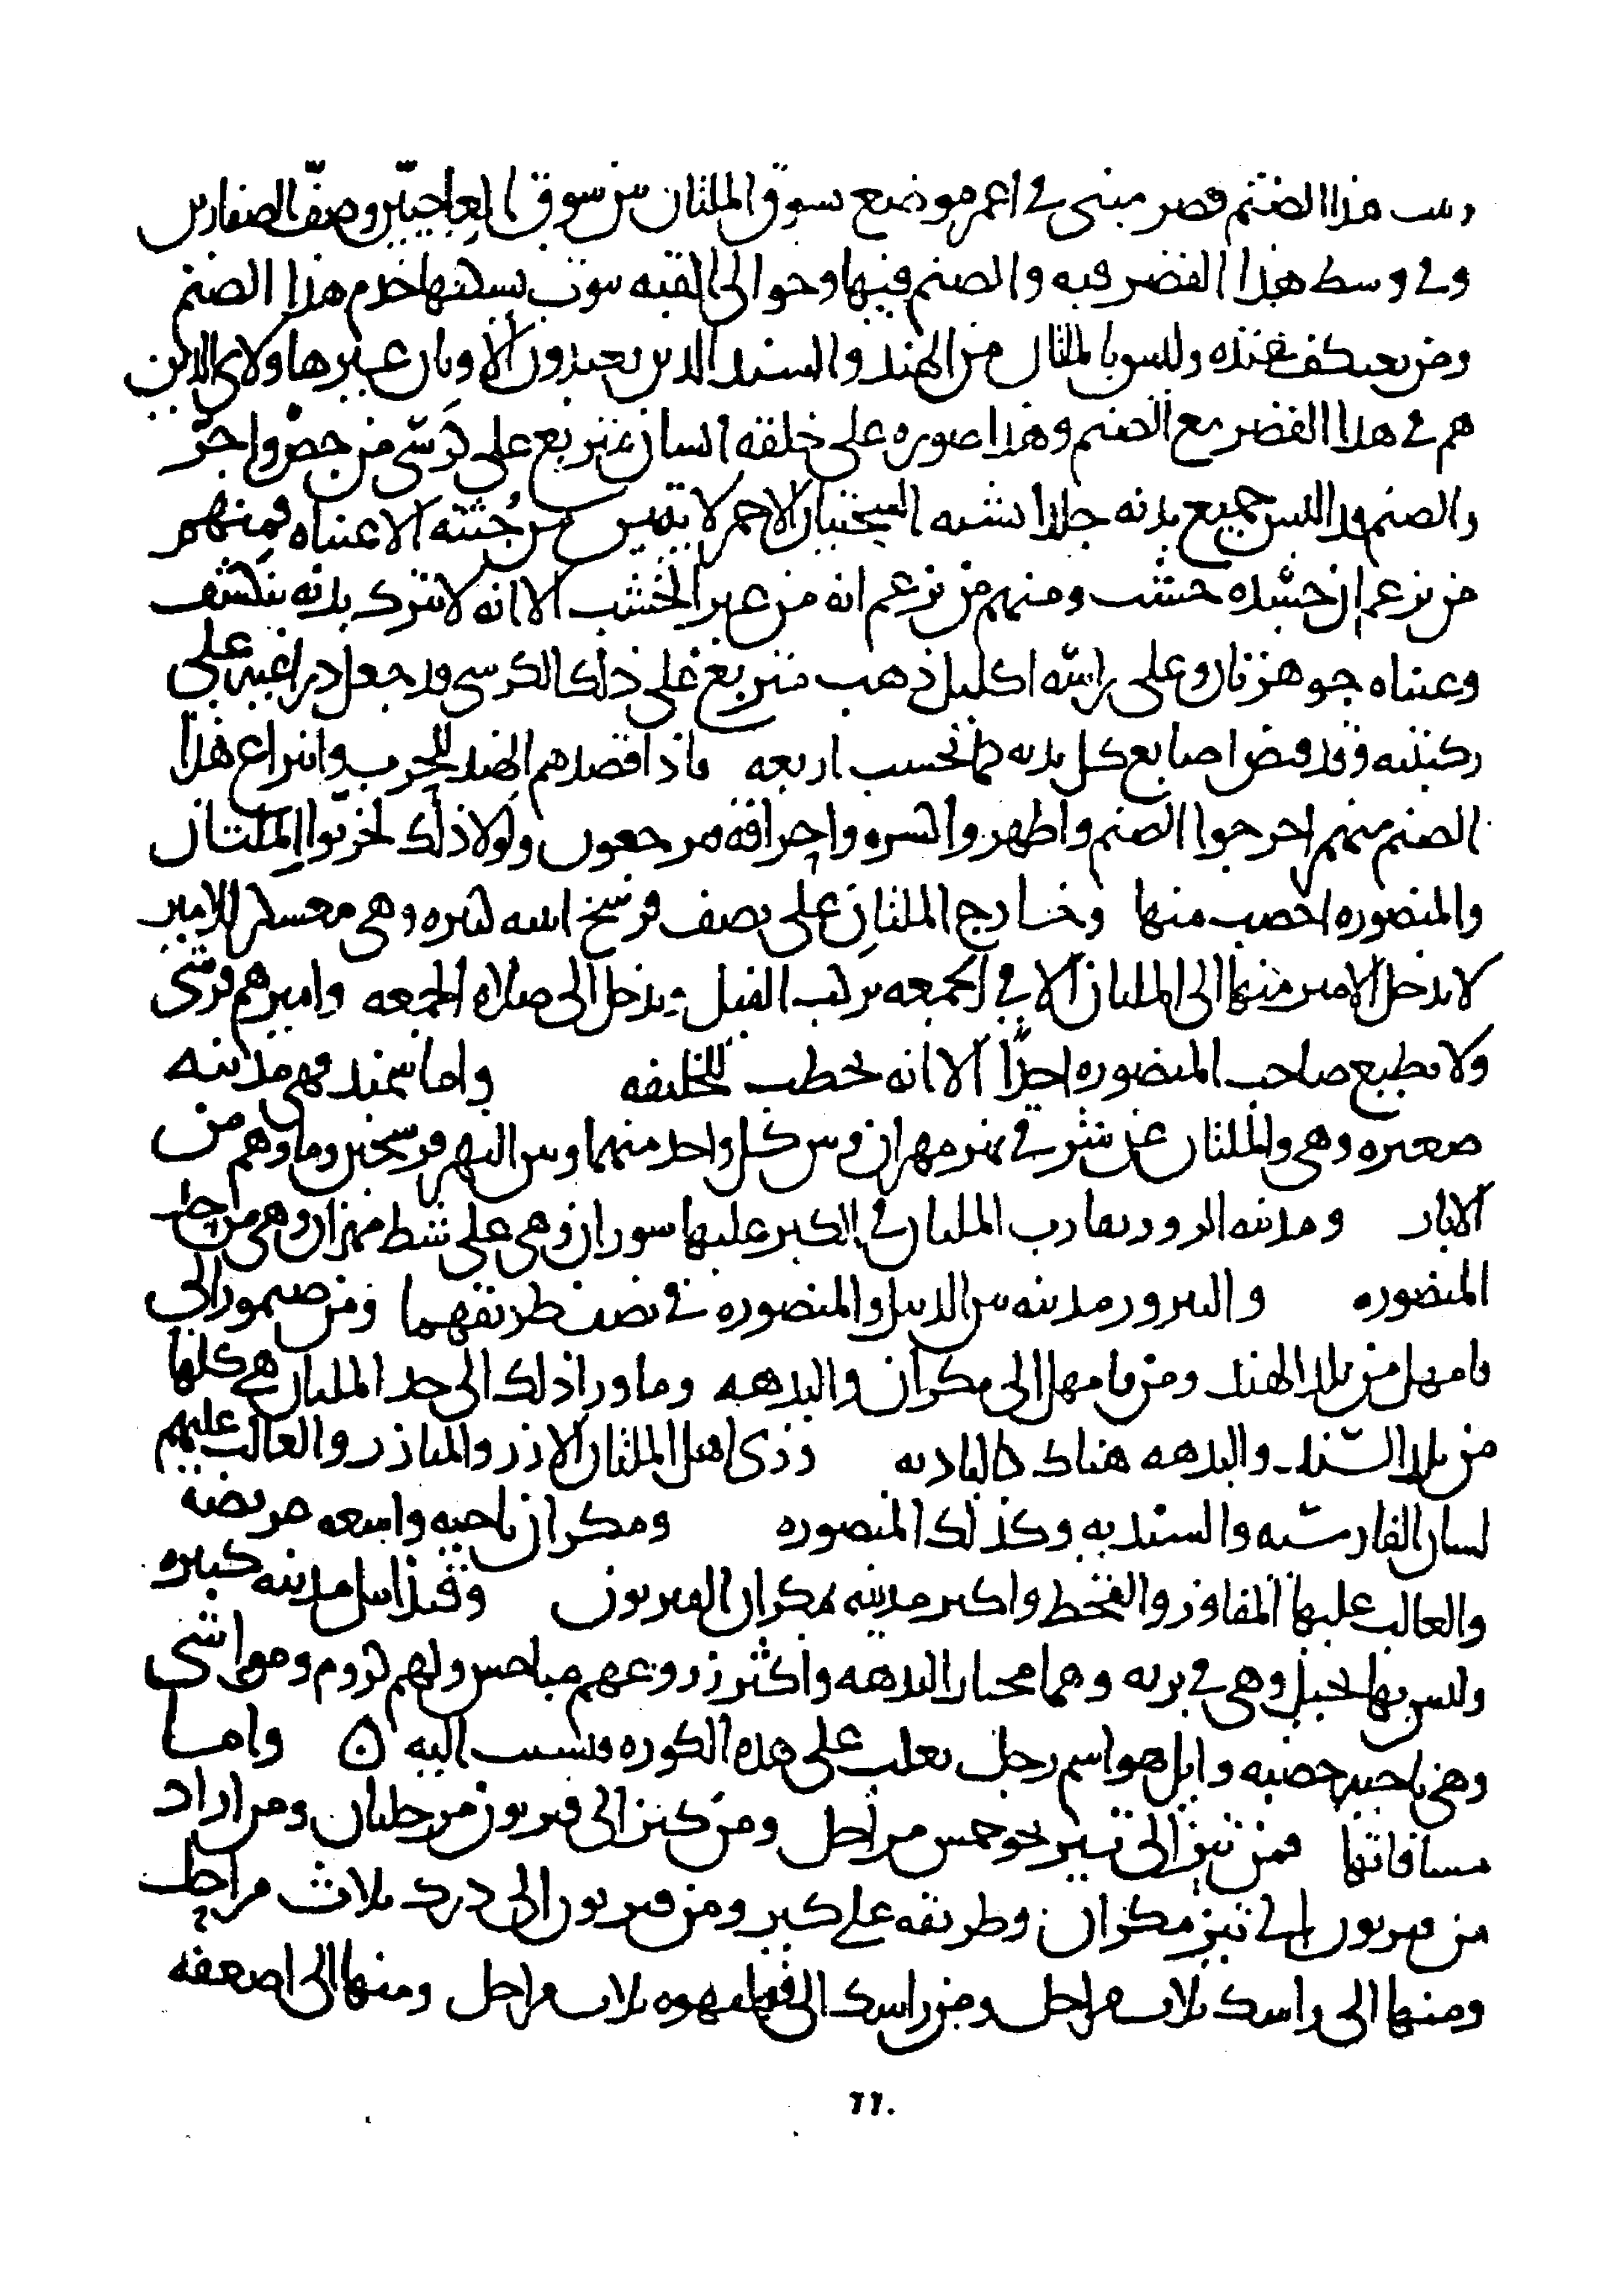 وبيت هذا الصنم قصر مبنى في اعمر موضع بسوق الملتان بين سوق العاجيّين وصفّ الصفارين
وفي وسط هذا القصر قبه والصنم فيها وحوالى القبه بيوت يسكنها خدم هذا الصنم
ومن يعتكف عنده وليس بالملتان من الهند والسند الذين يعبدون الاوثان غير هاولاى الذين
هم في هذا القصر مع الصنم وهذا صوره على خلقه انسان متربع على كرسّى من جص واجرّ
والصنم قد البس جميع بدنه جلدا يشبه السختيان الاحمر لا يتبين من جُثته الا عيناه فمنهم
من يزعم ان جسّده خشب ومنهم من يزعم انه من غير الخشب الا انه لا يترك بدنه ينكشف
وعيناه جوهرتان وعلى راسّه اكليل ذهب متربع على ذلك الكرسى وقد جعل ذراعيه على
ركبتيه وقد قبض اصابع كل يديه كما تحسب اربعه فاذا قصدهم الهند للحرب وانتزاع هذا
الصنم منهم اخرجوا الصنم واظهروا كسره واحراقه فيرجعون ولولا ذلك لخربوا الملتان
والمنصوره اخصب منها وخارج الملتان على نصف فرسخ ابنيه كثيره وهى معسكر للامير
لا يدخل الامير منها الى الملتان الا في الجمعه يركب الفيل ويدخل الى صلاه الجمعه واميرهم قرشى
ولا يطيع صاحب المنصوره احدًا الا انه يخطب للخليفه واما سمند فهى مدينه
صغيره وهى والملتان عن شرقي نهر مهران وبين كل واحد منهما وبين النهر فرسخين وماوهم من
الابار ومدينه الرور تقارب الملتان في الكبر عليها سوران وهى على شط مهران وهى من حد
المنصوره والنيرور مدينه بين الديبل والمنصوره في نصف طريقهما ومن صيمور الى
قامهل من بلد الهند ومن قامهل الى مكران والبدهه وما ورا ذلك الى حد الملتان هي كلها
من بلد السّند والبدهه هناك كالباديه وزى اهل الملتان الازر والميازر والغالب عليهم
لسان الفارسيه والسنديه وكذلك المنصوره ومكران ناحيه واسعه عريضه
والغالب عليها المفاوز والقحط واكبر مدينه بمكران القيربون وقندابيل مدينه كبيره
وليس بها نخيل وهى في بريه وهما محتار البدهه واكثر زروعهم مباخس ولهم كروم ومواشى
وهى ناحيه خصبه وايل هو اسم رجل تغلب على هذه الكوره فنسبت اليه ۞ واما
مسافاتها فمن تيز الى كيز نحو خمس مراحل ومن كيز الى قيربون مرحلتان ومن اراد
من قيربون الى تيز مكران وطريقه على كيز ومن قيربون الى درك ثلاث مراحل
ومنها الى راسك ثلاث مراحل ومن راسك الى فهلفهره ثلاث مراحل ومنها الى اصعفه